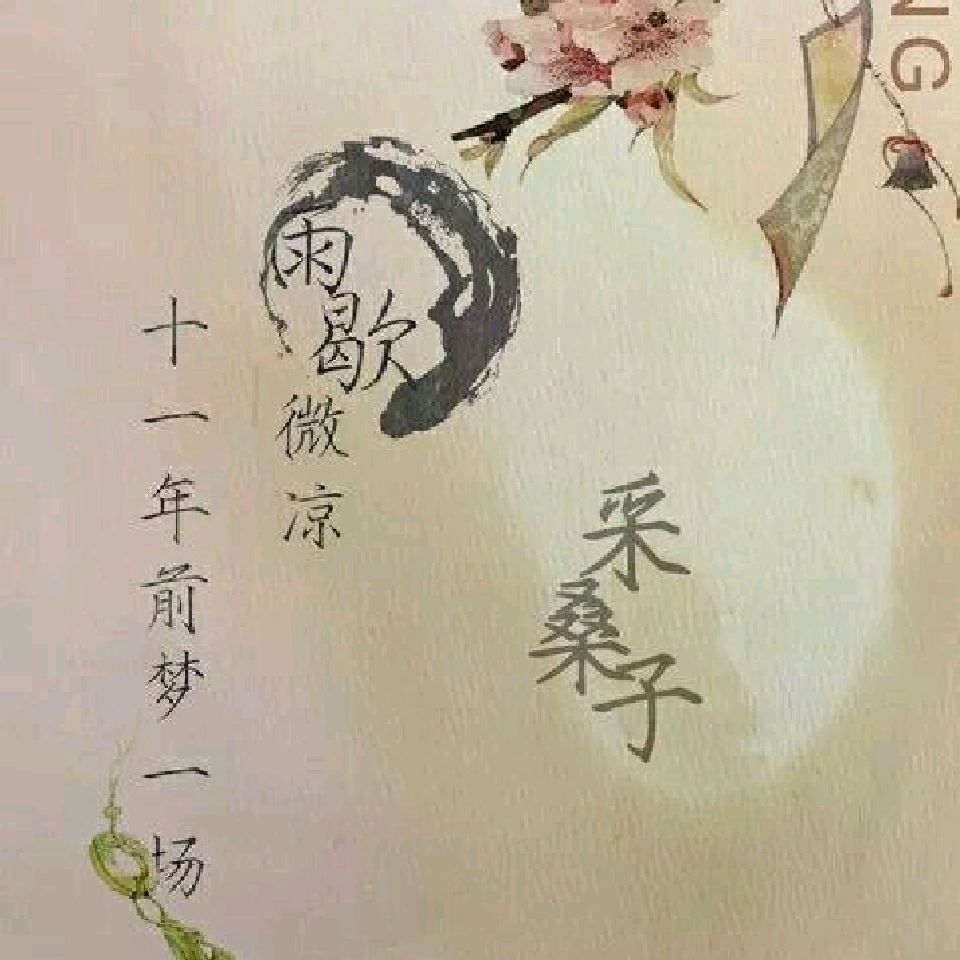 NG
采桑子
雨歇微凉
十一年前梦一场